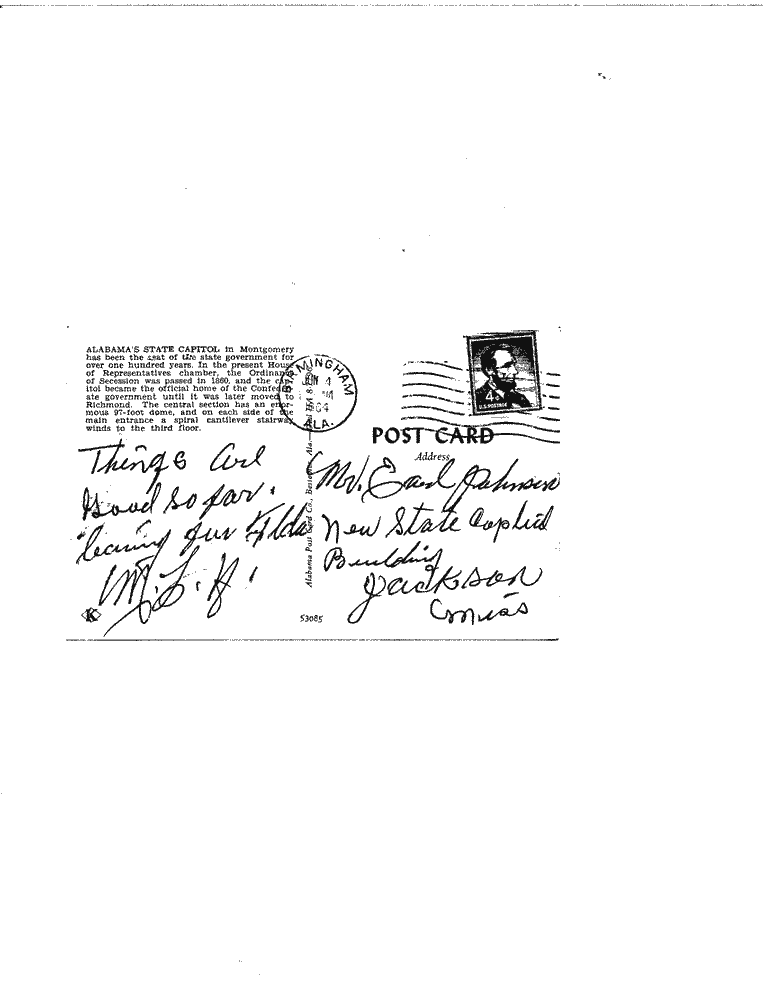 ALABAMA'S STATE CAPITOL in Montgomery
has been the seat of the state government for
over one hundred years. In the present House
of Representatives chamber, the Ordinance
of Secession was passed in 1860, and the cap-
itol became the official home of the Confeder-
ate government until it was later moved to
Richmond. The central section has an enor-
mous 97-foot dome, and on each side of the
main entrance a spiral cantilever stairway
winds to the third floor.
Things are
Good so far.
leaving for
M.L.H.
K
BIRMINGHAM
JUN 4
PM
64
ALA.
Alabama Post Card Co., Bessemer, Ala.
53085
4¢
U.S. POSTAGE
POST CARD
Address
Mr. Earl Johnson
New State Capitol
Building
Jackson
Miss